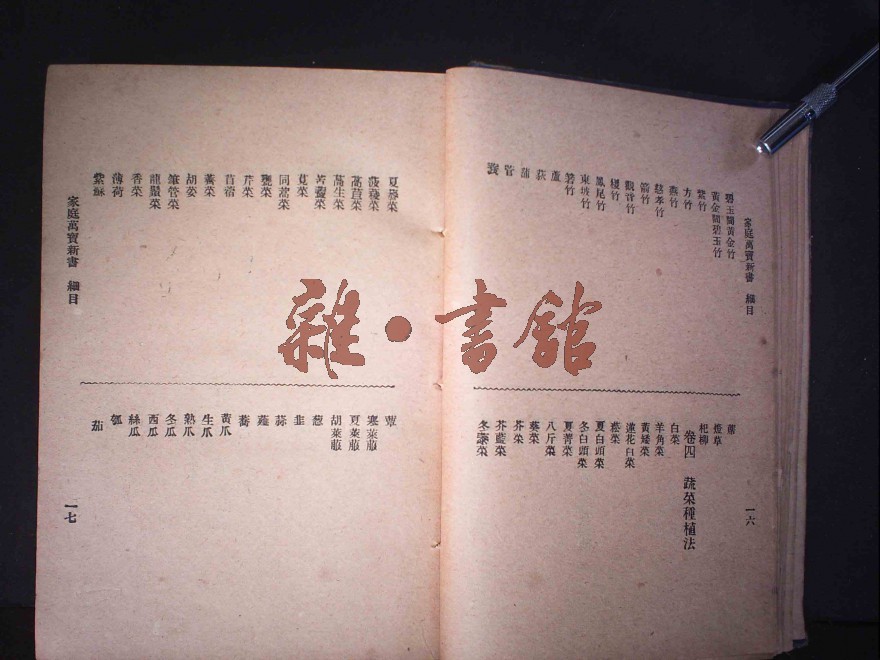 家庭萬寶新書 細目
碧玉間黃金竹
黃金間碧玉竹
紫竹
方竹
燕竹
慈孝竹
箭竹
觀音竹
椶竹
鳳尾竹
東坡竹
箬竹
蘆
荻
蒲
管
蓑
煙草
杞柳
卷四 蔬菜種植法
白菜
羊角菜
黃矮菜
蓮花白菜
菘菜
夏白頭菜
冬白頭菜
夏菁菜
八斤菜
藝菜
芥菜
芥藍菜
一六
夏菾菜
菠薐菜
萵苣菜
萵生菜
苦藚菜
莧菜
同蒿菜
甕菜
芹菜
苜蓿
薺菜
胡荽
筆管菜
龍鬚菜
香菜
薄荷
紫蘇
家庭萬寶新書 細目
蕈
寒萊菔
夏萊菔
胡萊菔
葱
韭
蒜
薤
蕎
黃瓜
生瓜
熟瓜
冬瓜
西瓜
絲瓜
瓠
茄
一七
雜·書館